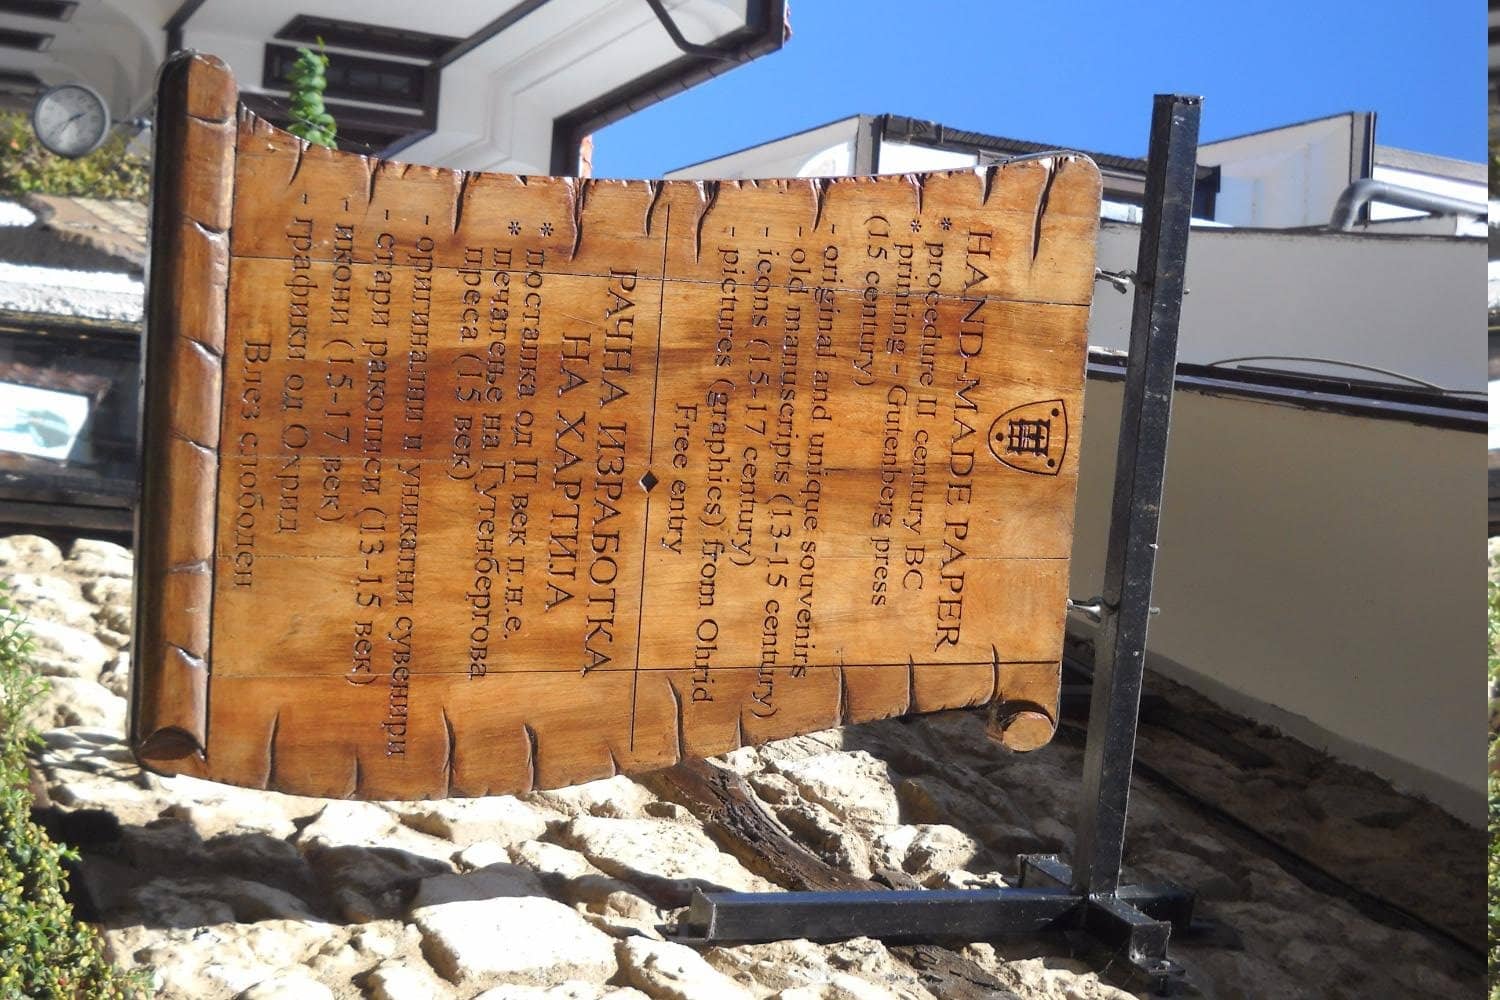 HAND-MADE PAPER
* procedure II century BC
* printing - Gutenberg press
(15 century)
- original and unique souvenirs
- old manuscripts (13-15 century)
- icons (15-17 century)
- pictures (graphics) from Ohrid
Free entry
РАЧНА ИЗРАБОТКА
НА ХАРТИЈА
* постапка од II век п.н.е.
* печатење на Гутенбергова
преса (15 век)
- оригинални и уникатни сувенири
- стари ракописи (13-15 век)
- икони (15-17 век)
- графики од Охрид
Влез слободен